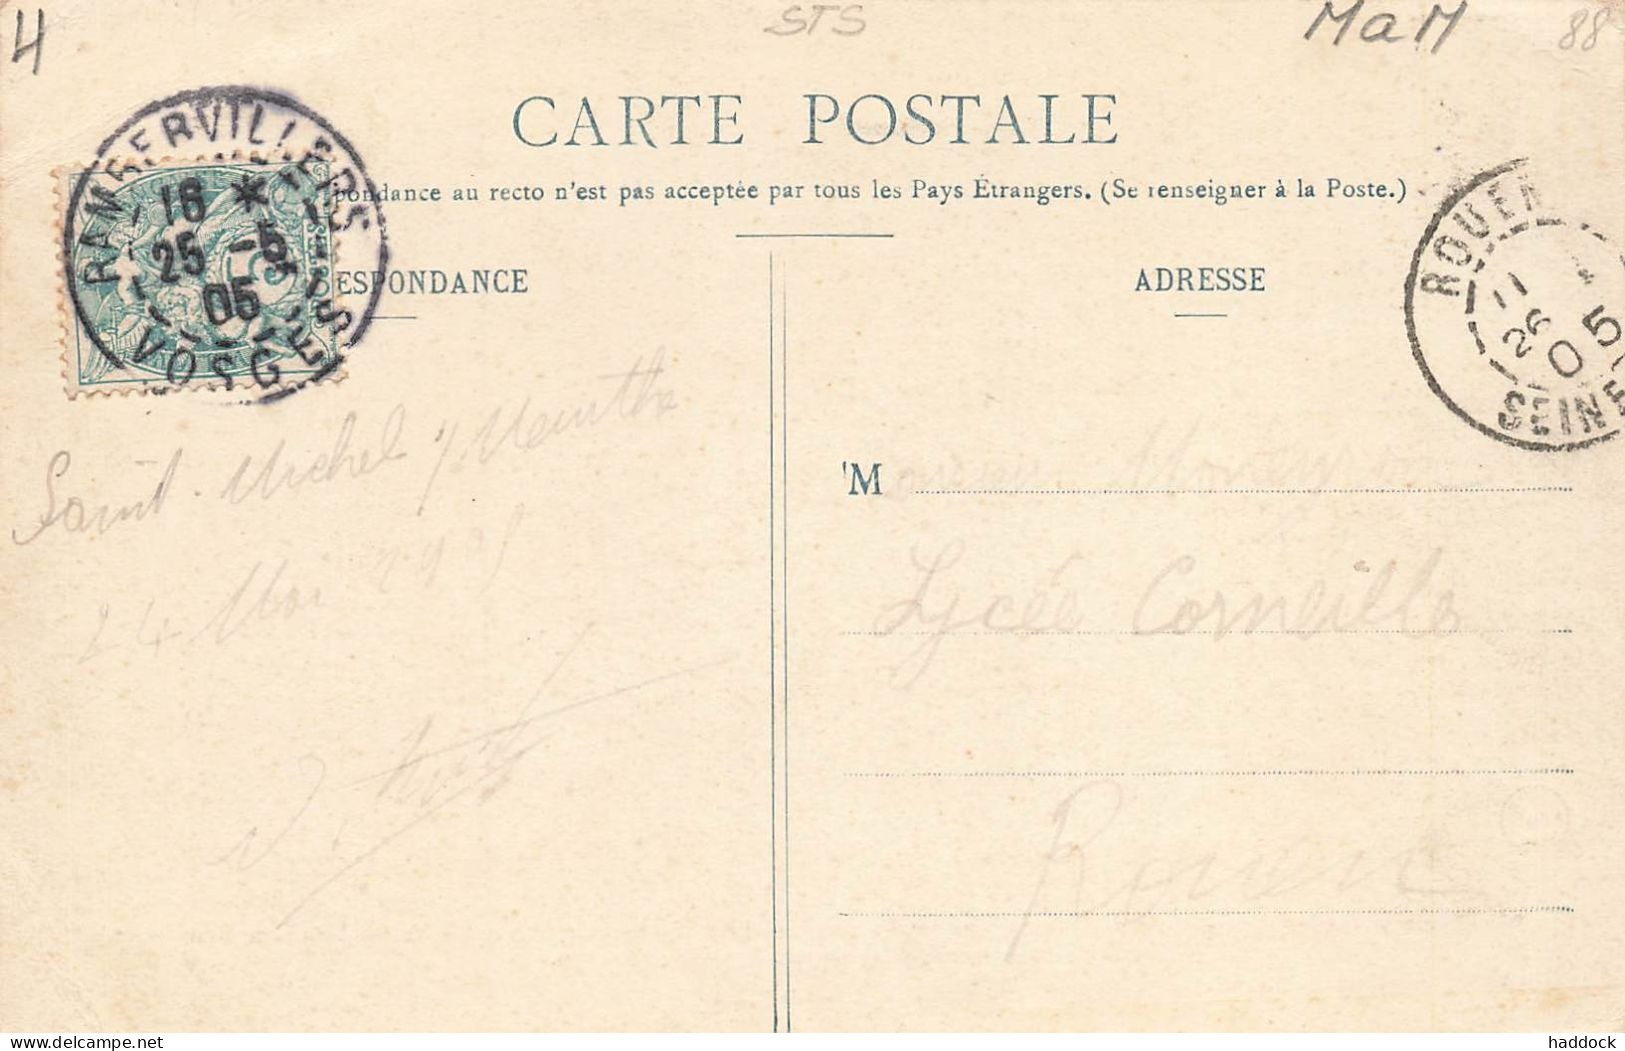 4
STS
MaM
88
CARTE POSTALE
pondance au recto n'est pas acceptée par tous les Pays Étrangers. (Se renseigner à la Poste.)
RAMBERVILLERS
18 *
25 -5
05
VOSGES
5
ESPONDANCE
ADRESSE
ROUEN
11
26
05
SEINE
Saint-Michel s/Meurthe
24 Mai 1905
M
Lycée Corneille
Rouen
delcampe.net
haddock